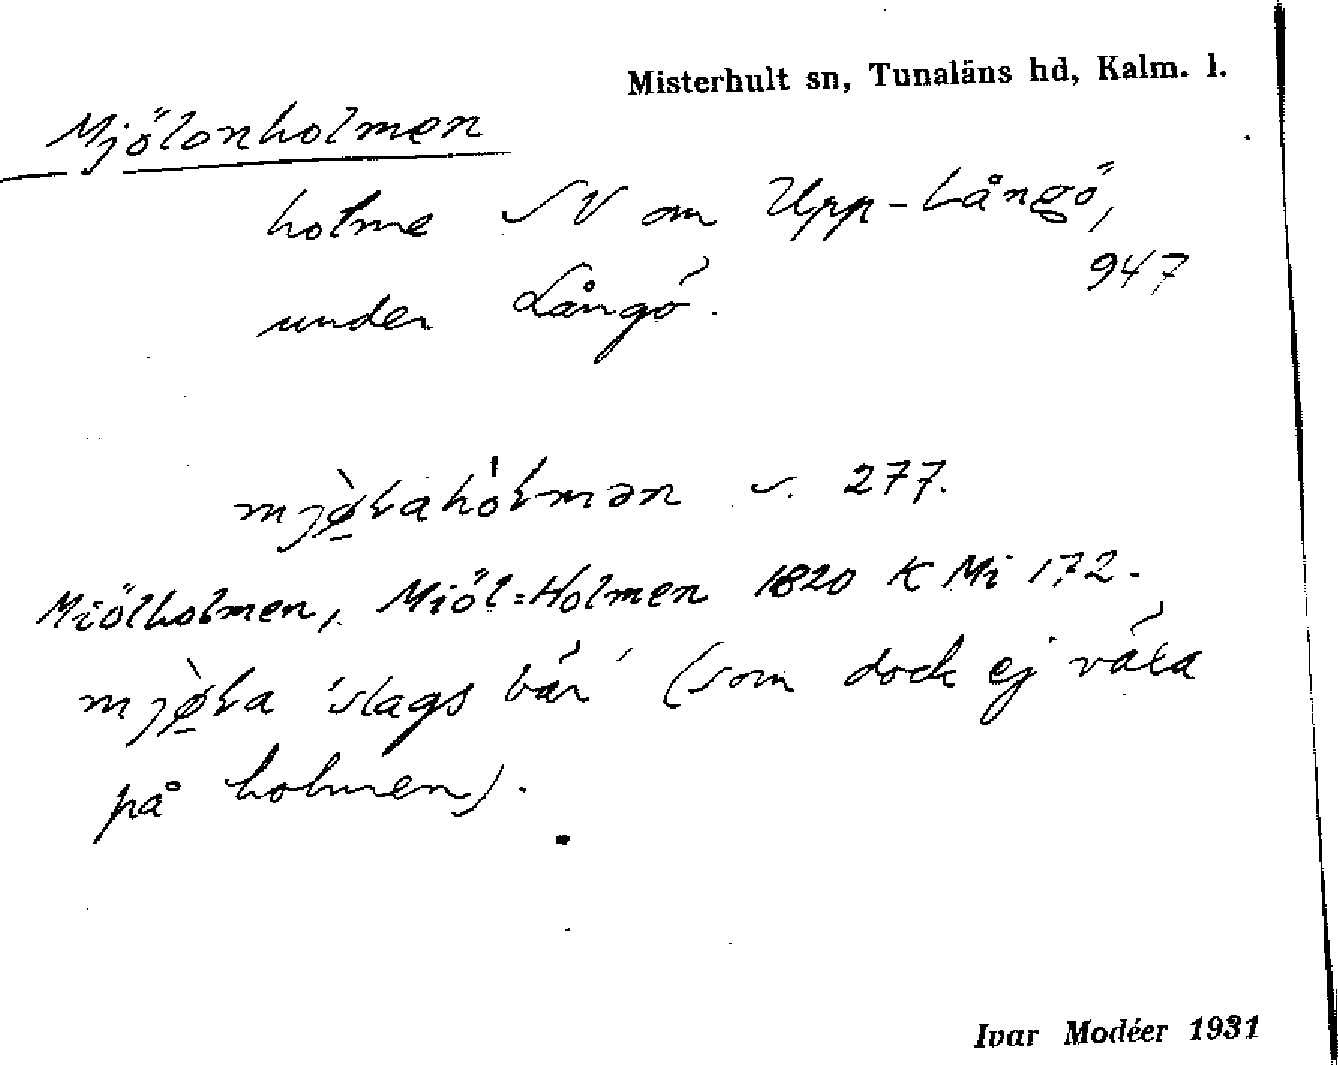 Misterhult sn, Tunaläns hd, Kalm. l.
Mjölonholmen
holme SV om Upp-Långö,
947
under Långö.
s. 277.
Miölholmen, Miöl=Holmen 1820 K Mi 172.
'slags bär' (som dock ej växa
på holmen).
Ivar Modéer 1931